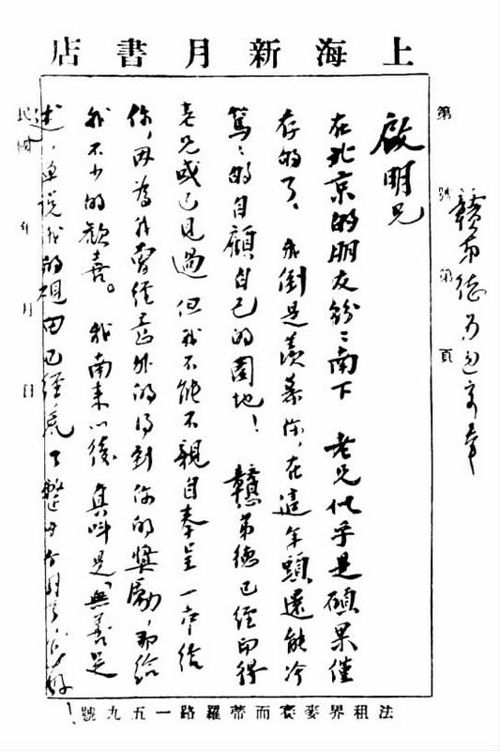 上海新月書店
第 號 第 頁
贛第德另包寄奉
啟明兄
在北京的朋友紛紛南下 老兄似乎是碩果僅
存的了、我倒是羨慕你、在這年頭還能冷
篤篤的自顧自己的園地！ 贛第德已經印得
老兄或已見過 但我不能不親自奉呈一本給
你，因為我曾經意外的得到你的獎勵，那給
我不少的歡喜。我南來以後 真叫是「無善足
述」單說我的硯田已經荒了整四個月了
年 月 日
法租界麥賽而蒂羅路一五九號